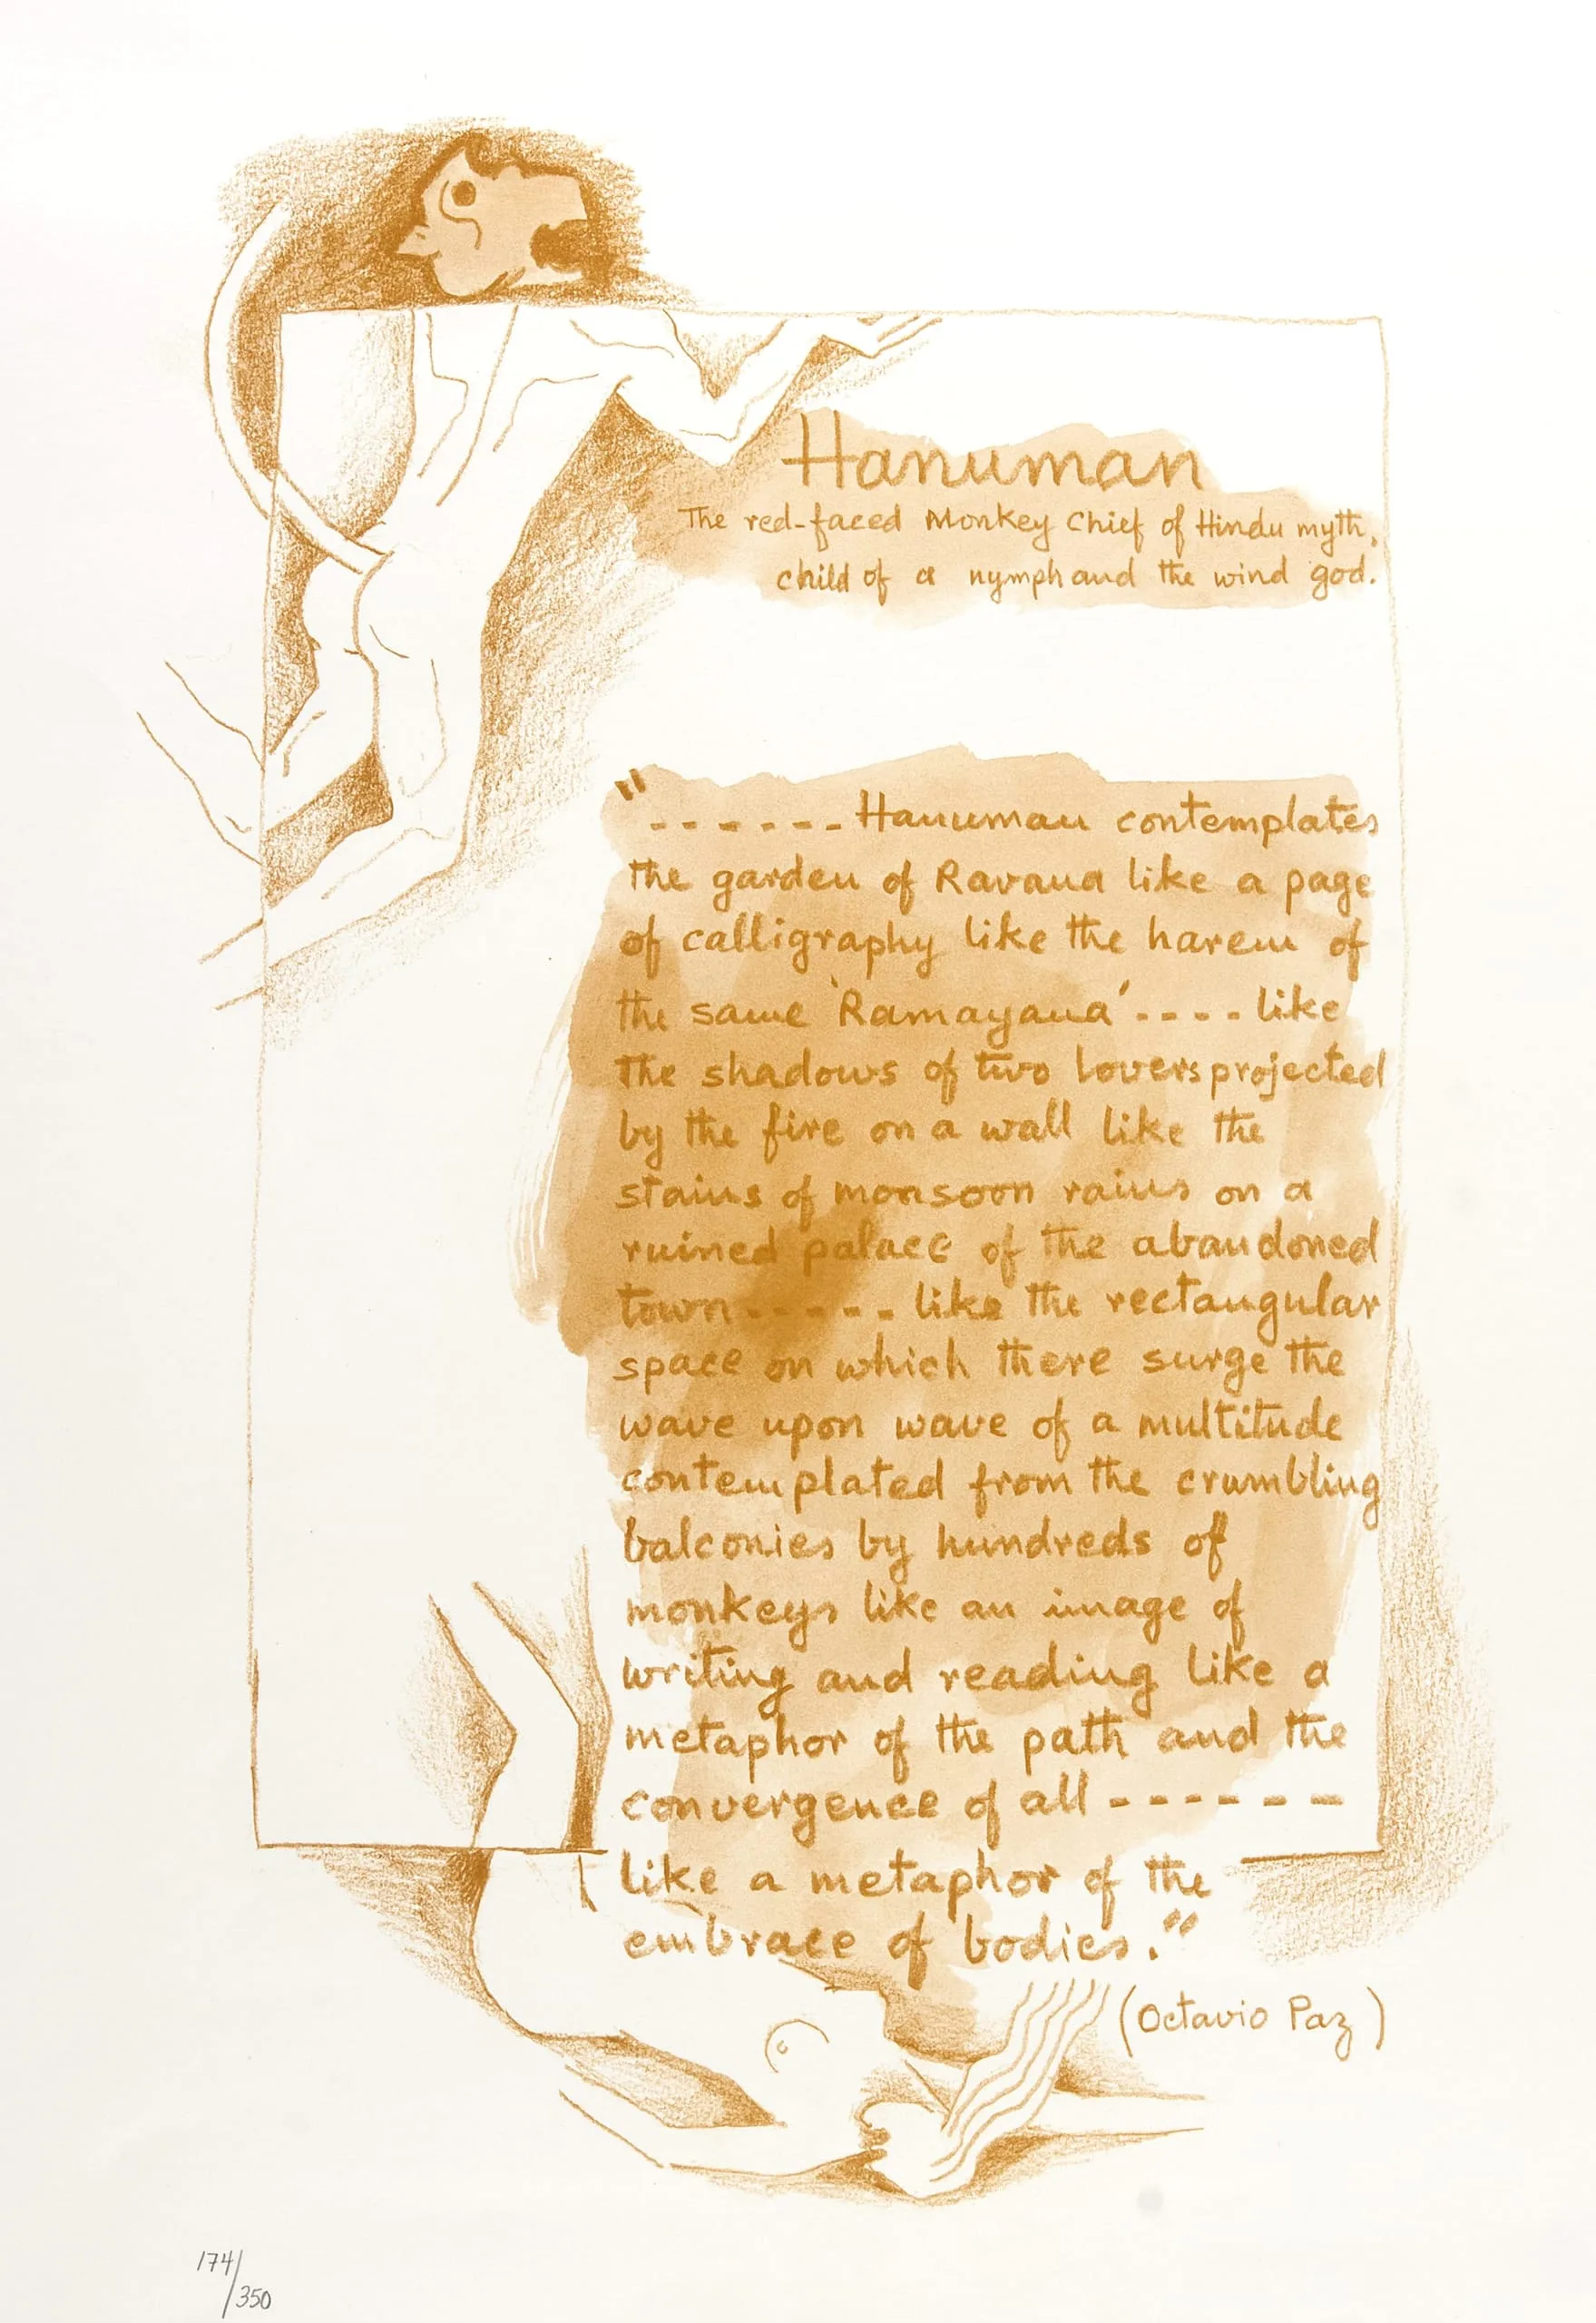 Hanuman
The red-faced Monkey Chief of Hindu myth,
child of a nymph and the wind god.
"------Hanuman contemplates
the garden of Ravana like a page
of calligraphy like the harem of
the same 'Ramayana'----like
the shadows of two lovers projected
by the fire on a wall like the
stains of monsoon rains on a
ruined palace of the abandoned
town-----like the rectangular
space on which there surge the
wave upon wave of a multitude
contemplated from the crumbling
balconies by hundreds of
monkeys like an image of
writing and reading like a
metaphor of the path and the
convergence of all------
like a metaphor of the
embrace of bodies."
(Octavio Paz)
174/350